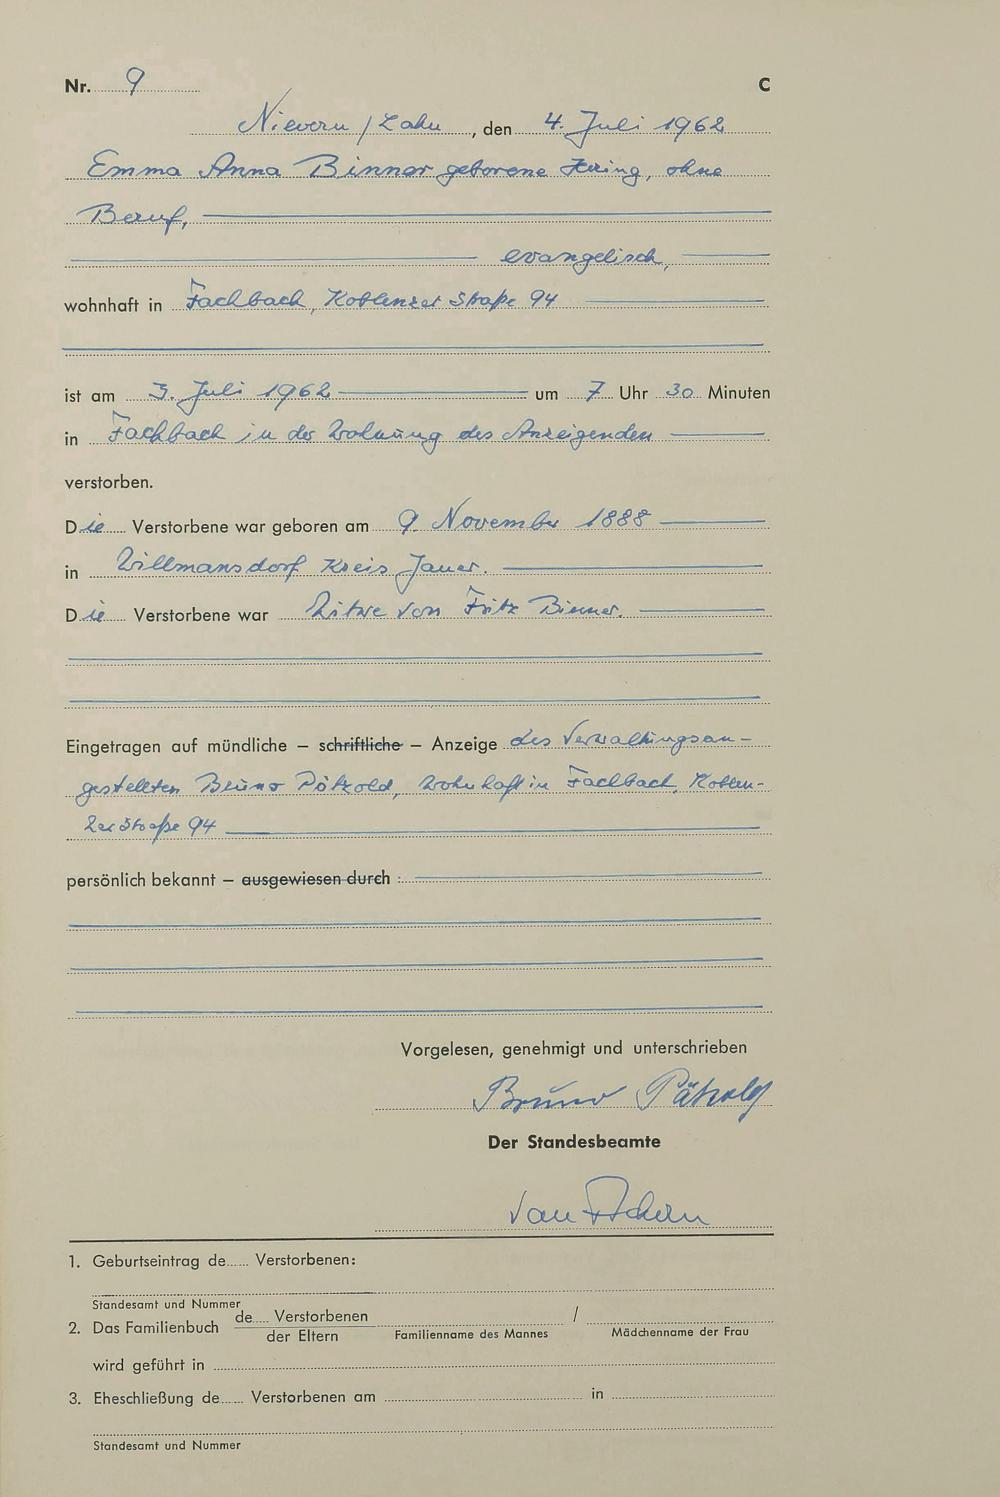 Nr. 9 C
Nievern / Lahn, den 4. Juli 1962
Emma Anna Binner geborene, ohne
Beruf,
evangelisch,
wohnhaft in Fachbach, Koblenzer Straße 94
ist am 3. Juli 1962 um 7 Uhr 30 Minuten
in Fachbach in der Wohnung des Anzeigenden
verstorben.
Die Verstorbene war geboren am 9. November 1888
in Willmansdorf Kreis Jauer.
Die Verstorbene war Witwe von Fritz Binner.
Eingetragen auf mündliche – schriftliche – Anzeige des Verwaltungsan-
gestellten Bruno Pätzold, wohnhaft in Fachbach, Koblen-
zer Straße 94
persönlich bekannt – ausgewiesen durch :
Vorgelesen, genehmigt und unterschrieben
Bruno Pätzold
Der Standesbeamte
1. Geburtseintrag de...... Verstorbenen:
Standesamt und Nummer
2. Das Familienbuch de.... Verstorbenen /
der Eltern Familienname des Mannes Mädchenname der Frau
wird geführt in
3. Eheschließung de...... Verstorbenen am in
Standesamt und Nummer